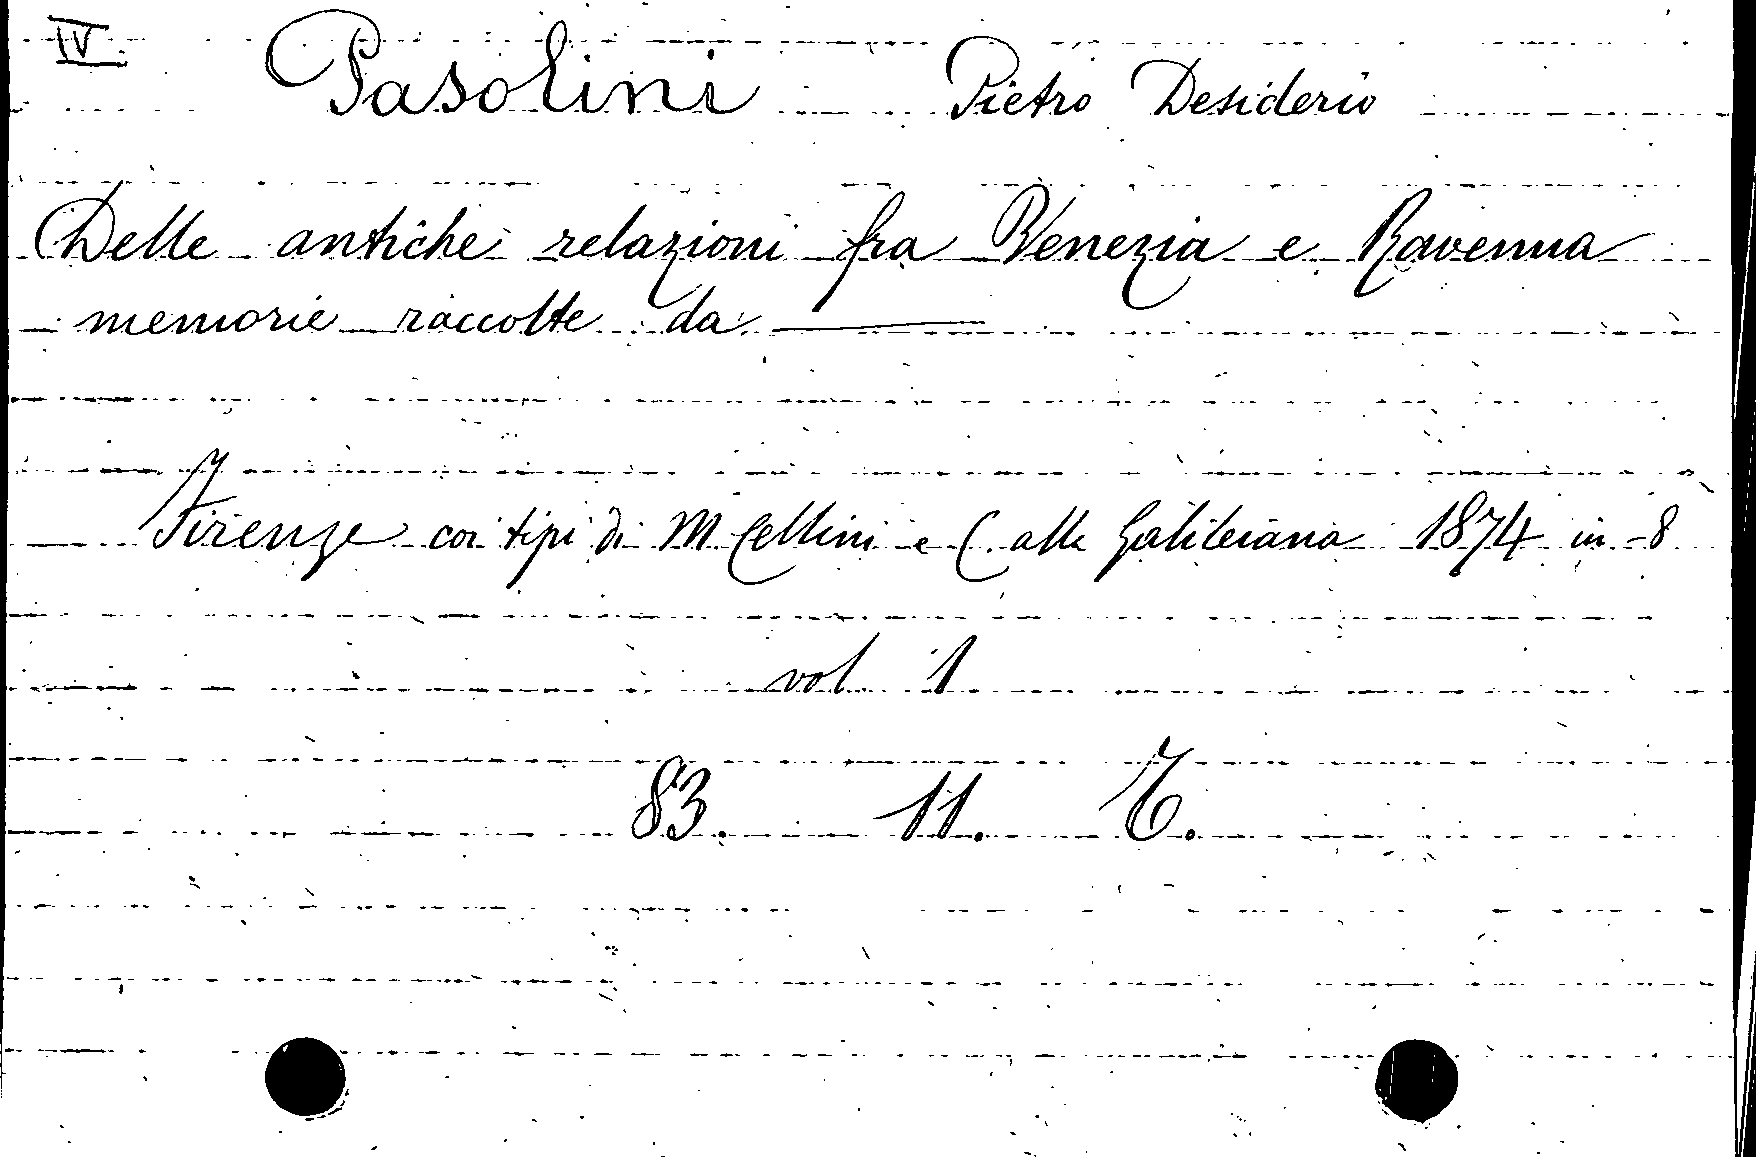 IV
Pasolini Pietro Desiderio
Delle antiche relazioni fra Venezia e Ravenna
memorie raccolte da ———
Firenze coi tipi di M Cellini e C. alla Galileiana 1874 in-8
vol 1
83. 11. T.